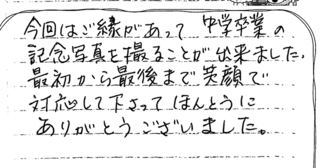 今回はご縁があって 中学卒業の
記念写真を撮ることが出来ました。
最初から最後まで笑顔で
対応して下さって ほんとうに
ありがとうございました。